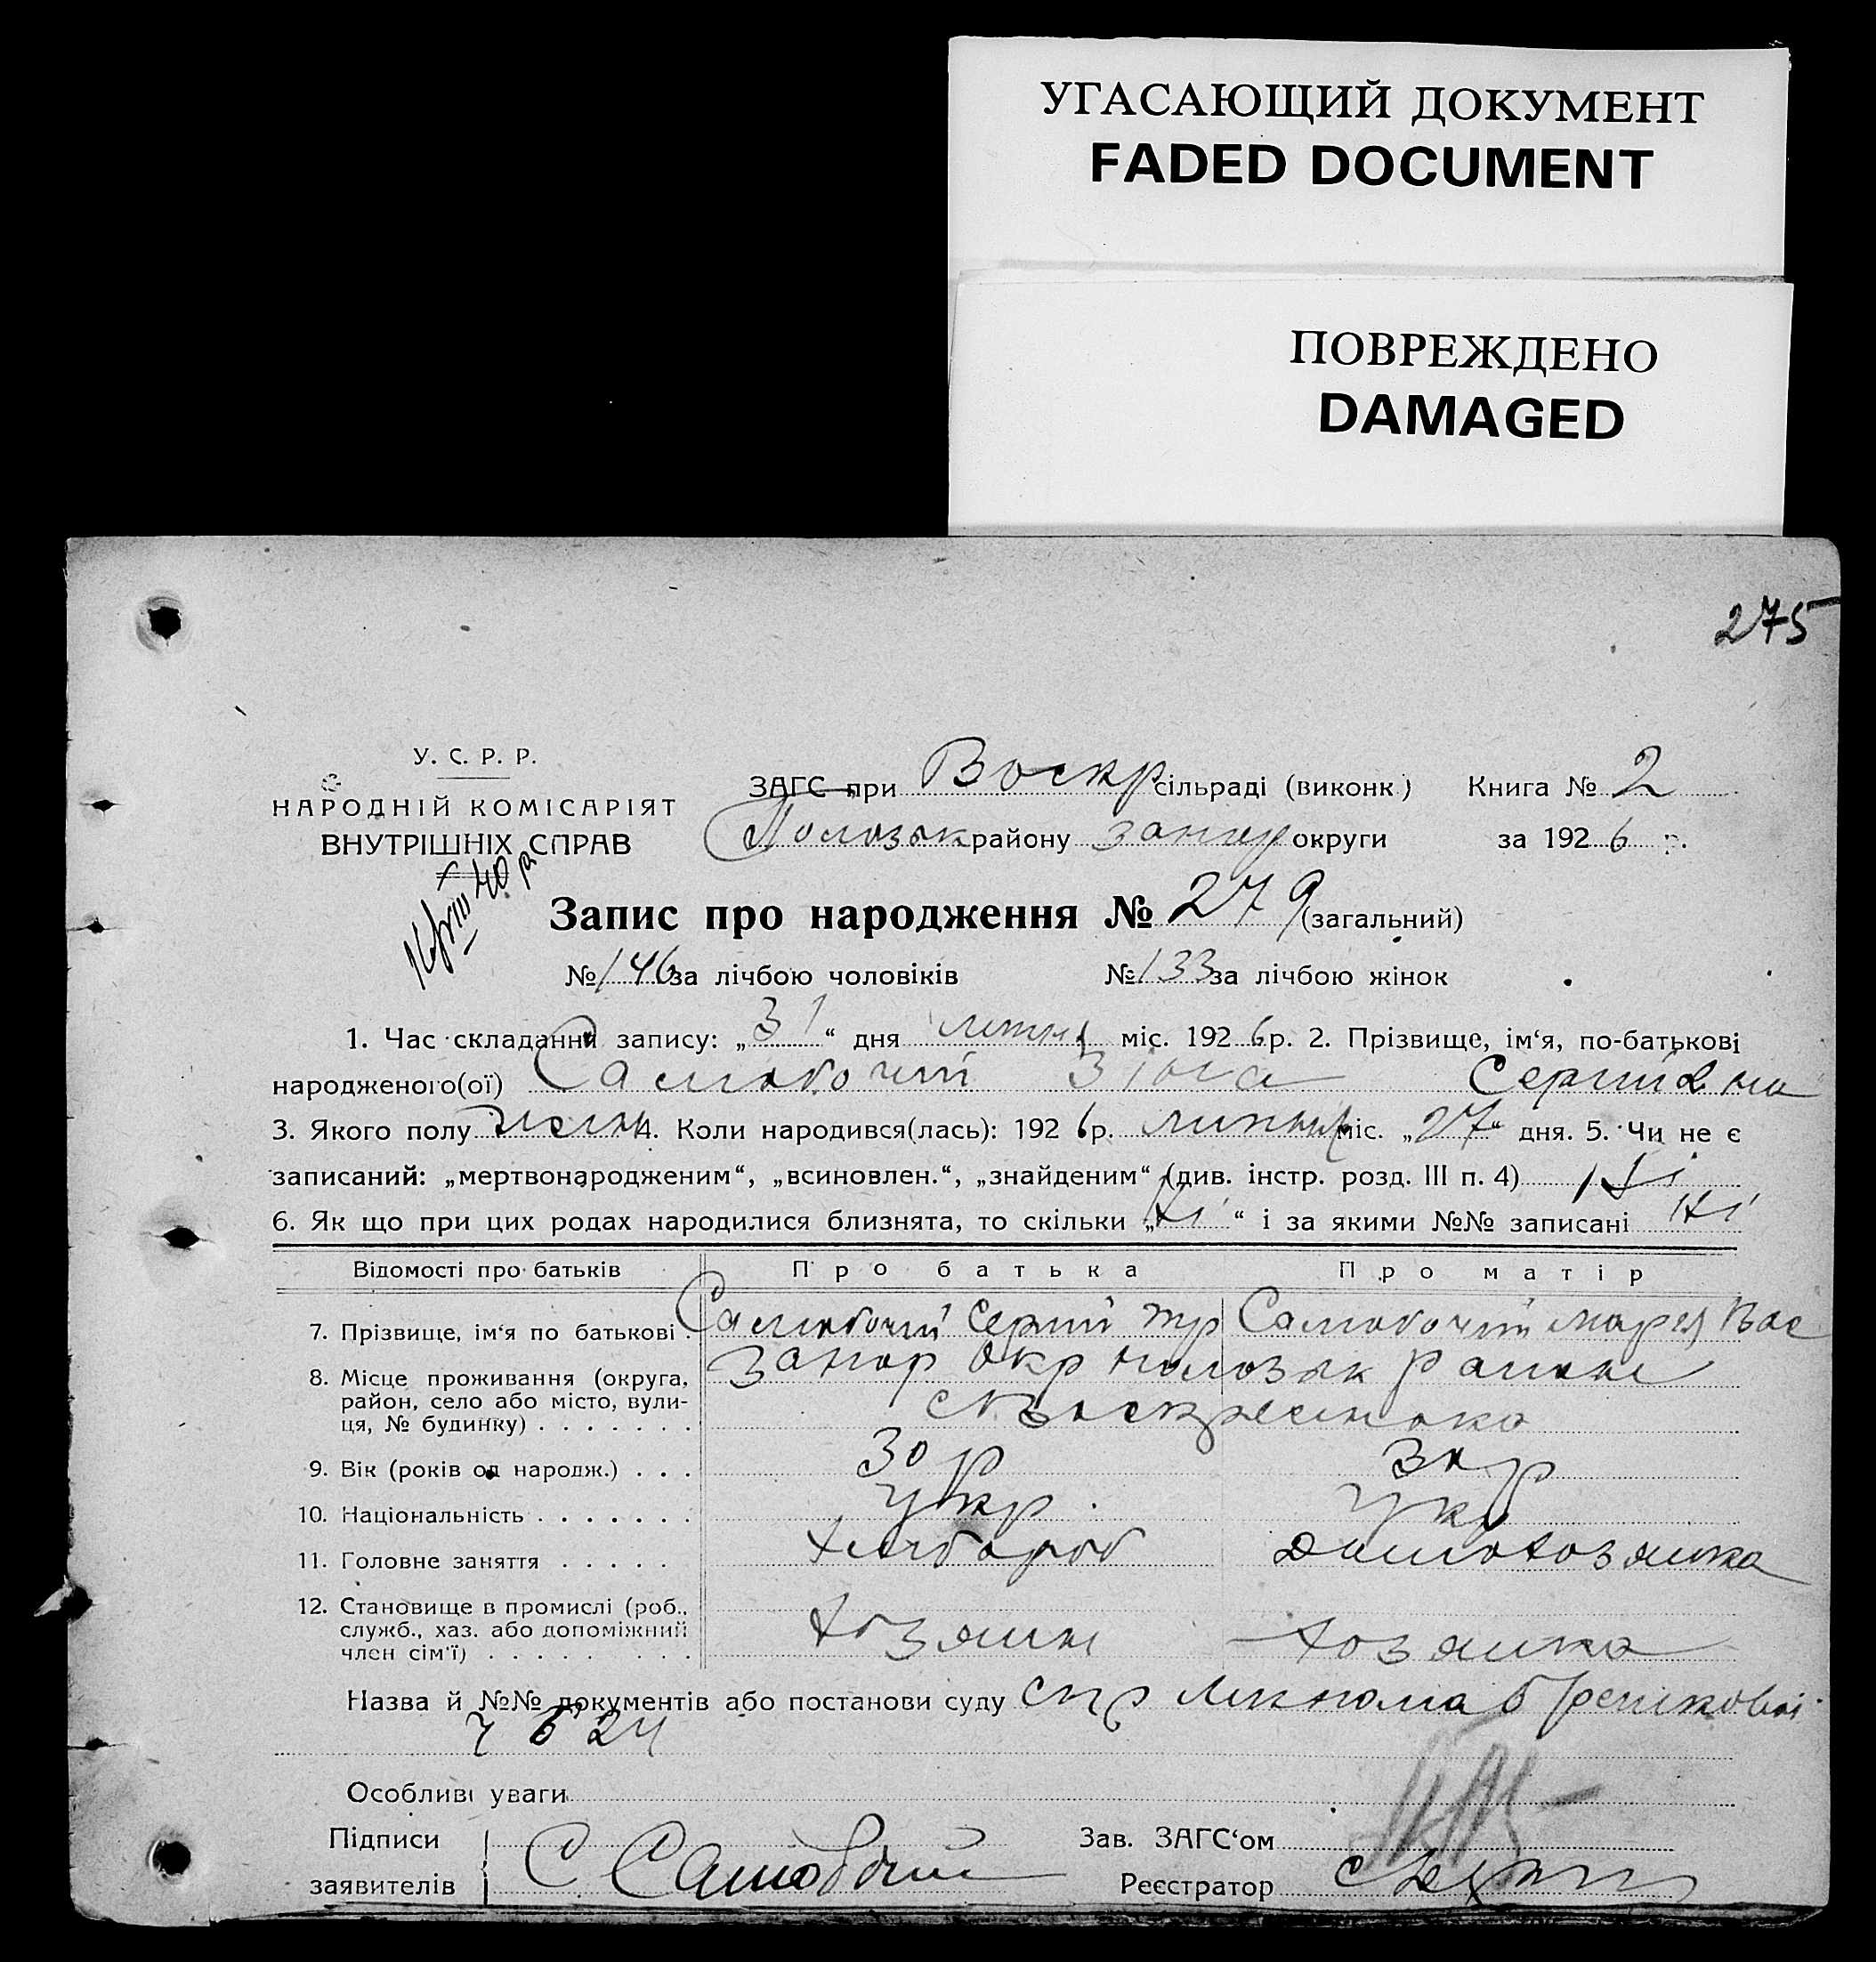 УГАСАЮЩИЙ ДОКУМЕНТ
FADED DOCUMENT
ПОВРЕЖДЕНО
DAMAGED
275
У. С. Р. Р.
НАРОДНІЙ КОМІСАРІЯТ
ВНУТРІШНІХ СПРАВ
ЗАГС при Воскр сільраді (виконк.) Книга № 2
Пологзьк району запор округи за 1926 р.
Запис про народження № 279 (загальний)
№ 146 за лічбою чоловіків № 133 за лічбою жінок
1. Час складання запису: „31“ дня липня міс. 1926 р. 2. Прізвище, ім‘я, по-батькові
народженого(ої) Самобочий Зіна Сергіивна
3. Якого полу жін 4. Коли народився(лась): 1926 р. липня міс. „27“ дня. 5. Чи не є
записаний: „мертвонародженим“, „всиновлен.“, „знайденим“ (див. інстр. розд. III п. 4) Ні
6. Як що при цих родах народилися близнята, то скільки „Ні“ і за якими №№ записані Ні
Відомості про батьків Про батька Про матір
7. Прізвище, ім‘я по батькові Самобочий Сергій Самобочий Марея Вас
8. Місце проживання (округа, район, село або місто, вулиця, № будинку) Запор окр район
9. Вік (років од народж.) 30 р 30 р
10. Національність Укр Укр
11. Головне заняття хлібороб Домохозяйка
12. Становище в промислі (роб., служб., хаз. або допоміжний член сім‘ї) хозяин хозяйка
Назва й №№ документів або постанови суду
Особливі уваги
Підписи
заявителів С Самобочий
Зав. ЗАГС‘ом
Реєстратор